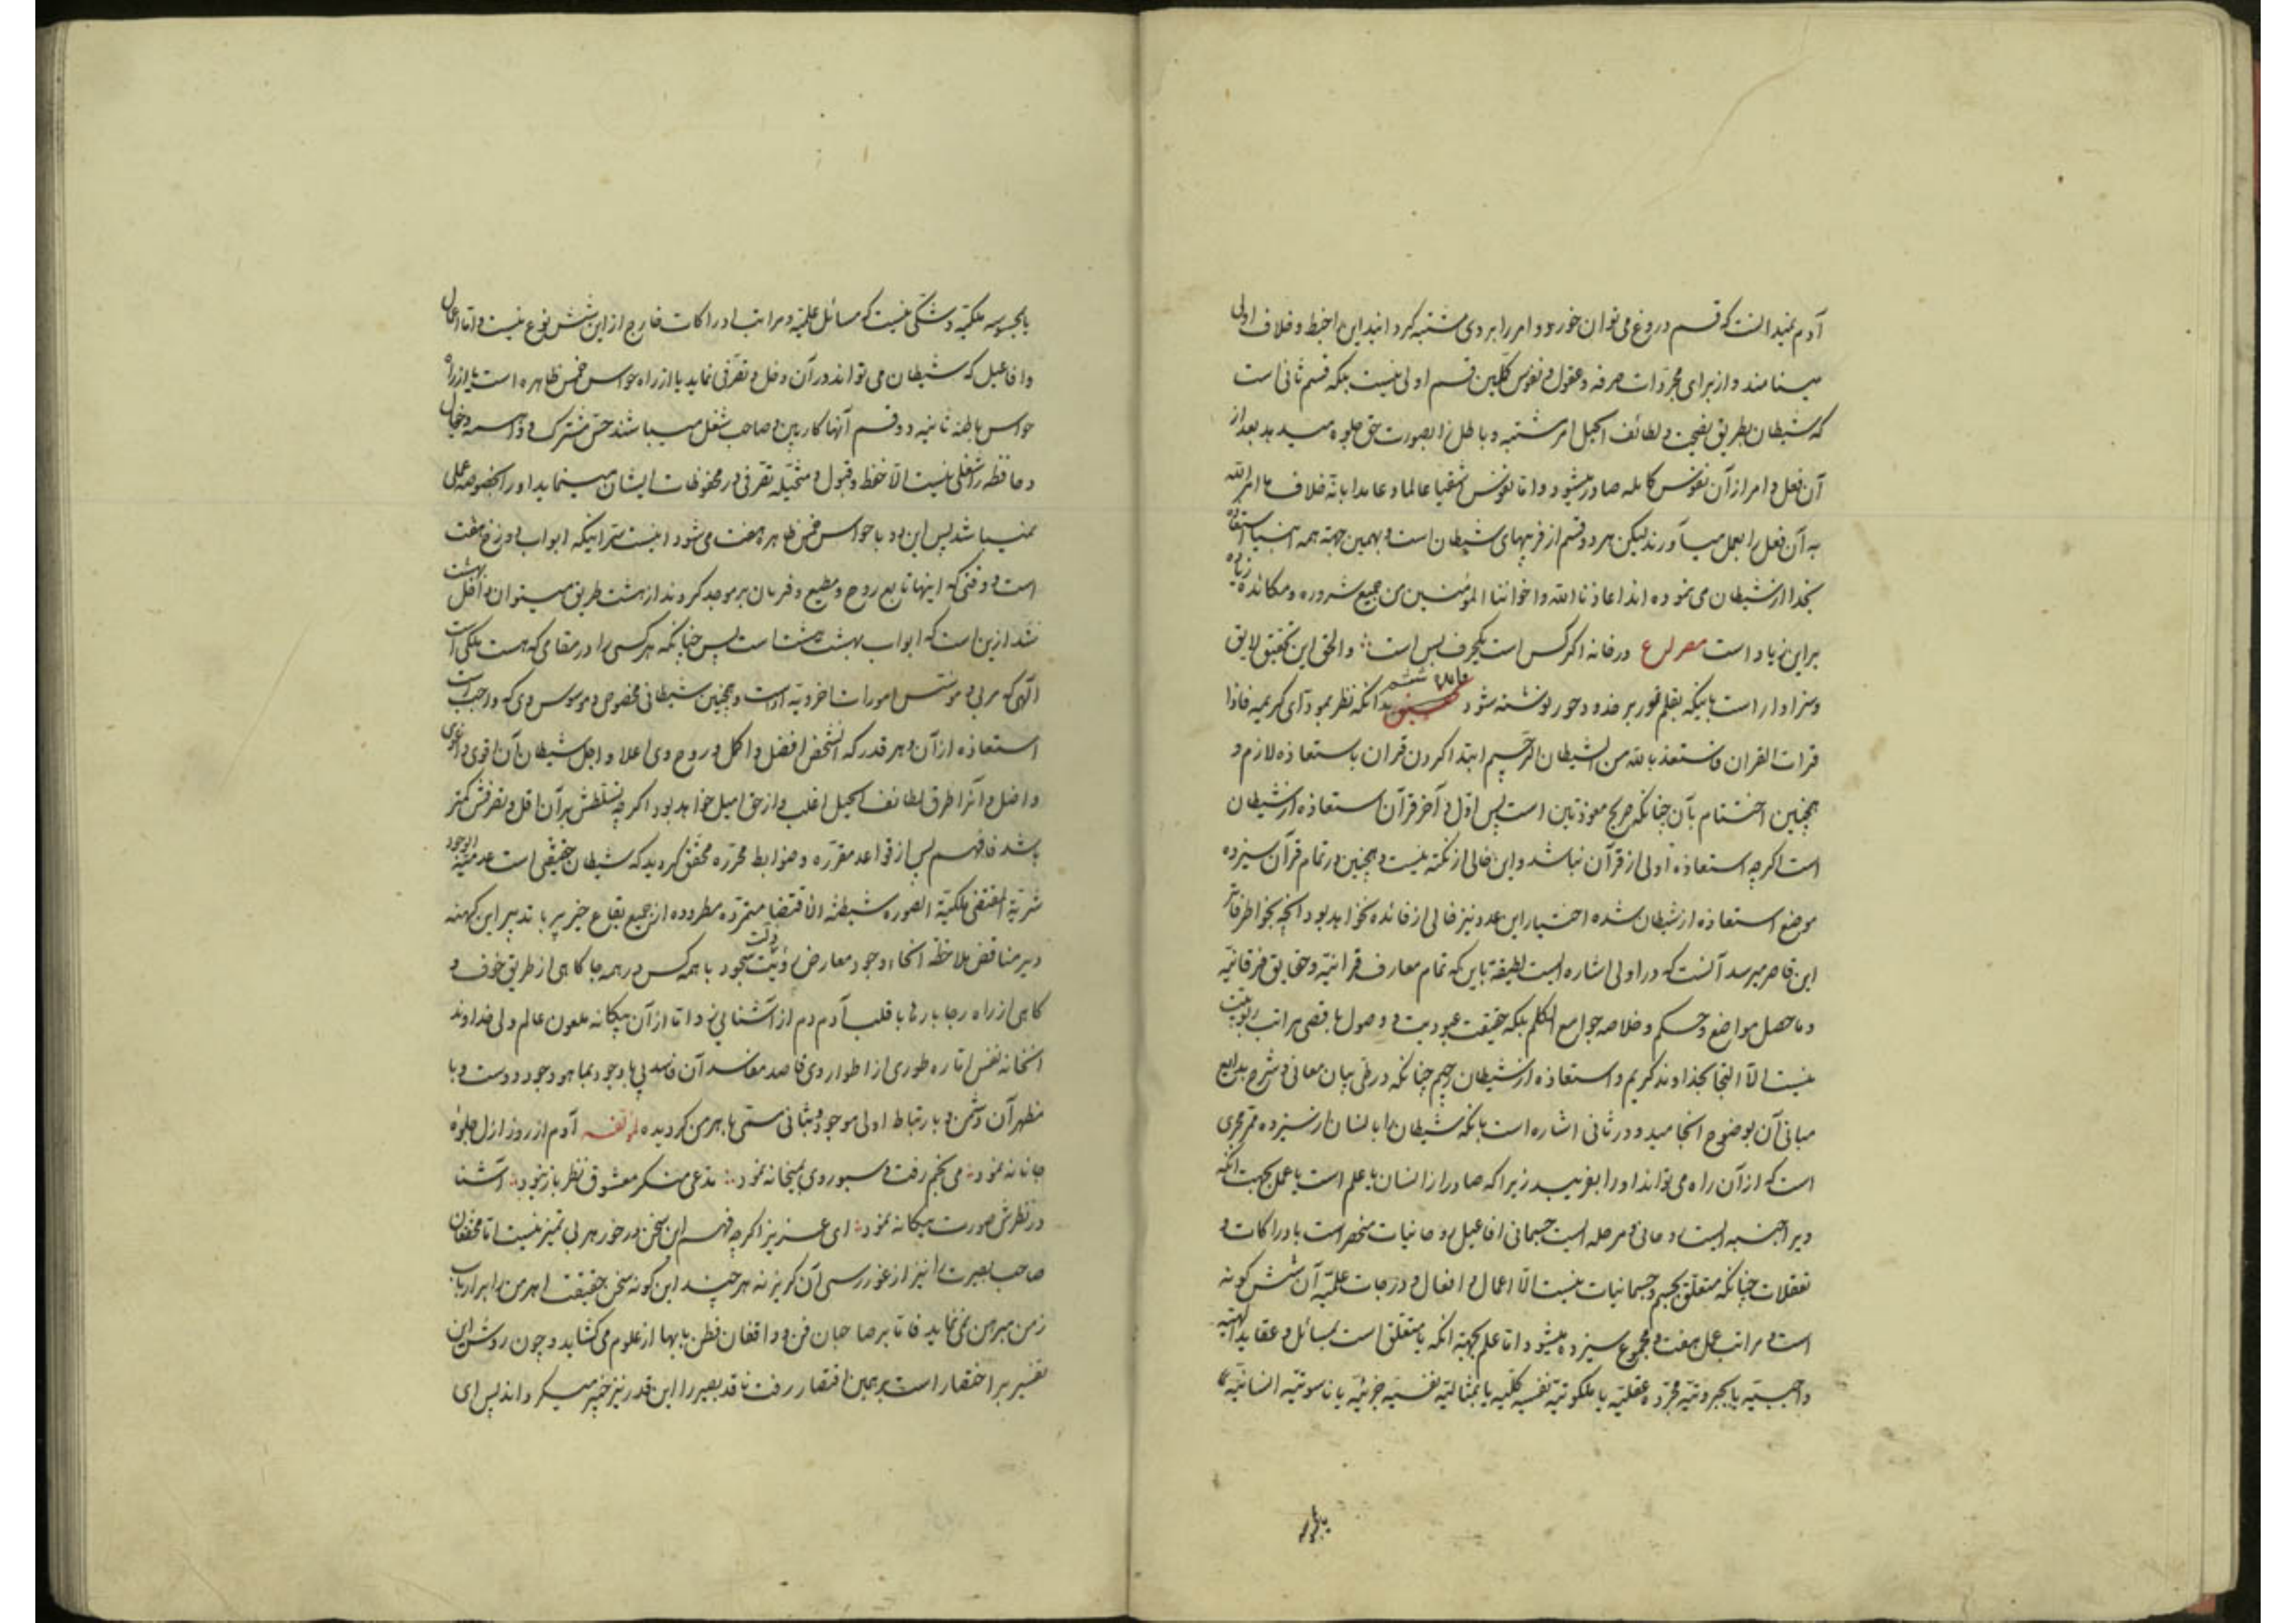 آدم نمیدانست که قسم دروغ می توان خورد و امر را بر وی مشتبه کرد انید این احبط و خلاف اولی
مینامند و از برای مجردات صرفه و عقول و نفوس کلیین قسم اولی نیست بلکه قسم ثانی است
که شیطان بطریق نصیحت و لطائف الحیل امر مشتبه و باطل را بصورت حق جلوه میدهد بعد از
آن فعل و امر از آن نفوس کامله صادر میشود و اما نفوس اشقیا عالما و عامدا بانّه خلاف ما امر الله
به آن فعل را بعمل میآورند لیکن هر دو قسم از فریبهای شیطان است و بهمین جهته همه انبیا استعاذه
بخدا از شیطان می نموده اند اعاذنا الله و اخواننا المؤمنین من جمیع شروره و مکائده زیاده
بر این زیاد است مصراع در خانه اگر کس است یکحرف بس است و الحق این تحقیق لایق
و سزاوار است باینکه بقلم نور بر خده و حور نوشته شود فایده ششم بدانکه نظر بمودّای کریمه فاذا
قرات القران فاستعذ بالله من الشیطان الرجیم ابتدا کردن قران باستعاذه لازم و
همچنین اختتام بآن چنانکه صریح معوذتین است پس اوّل و آخر قرآن استعاذه از شیطان
است اگر چه استعاذه اولی از قرآن نباشد و این خالی از نکته نیست و همچنین در تمام قرآن سیزده
موضع استعاذه از شیطان شده اختیار این عدد نیز خالی از فائده نخواهد بود آنچه بخواطر فاتر
این قاصر میرسد آنست که در اولی اشاره ایست لطیفة باین که تمام معارف قرانیّه و حقایق فرقانیّه
و ماحصل مواضع و حسکم و خلاصه جوامع الکلم بلکه حقیقت عبودیت و وصول باقصی مراتب ربوبیت
نیست الّا التجا بخداوند کریم و استعاذه از شیطان رجیم چنانکه در طی بیان معانی و شرح بدایع
مبانی آن بوضوح انجامید و در ثانی اشاره است بانکه شیطان را بانسان از سیزده ممّر مجری
است که از آن راه می تواند او را بفریبد زیرا که صادر از انسان یا علم است یا عمل بجهت آنکه
ویرا جنبه ایست روحانی و مرحله ایست جسمانی افاعیل روحانیات منحصر است بادراکات و
تعقلات چنانکه متعلّق بجسم و جسمانیات نیست الّا اعمال و افعال و درجات علمیّه آن شش گونه
است و مراتب عمل هفت و مجموع سیزده میشود اما علم بجهته انکه یا متعلق است بمسائل و عقاید الهیّه
واجبیّه یا بجبروتیّه مجرّده عقلیّه یا بملکوتیّه نفسیّه کلّیه یا بمثالیّه نفسیّه جزئیّه یا ناسوتیّه انسانیّه
یا بجسومیه
یا بجسومیه ملکیّه و شکّی نیست که مسائل علمیّه و مراتب ادراکات خارج از این شش نوع نیست و اما اعمال
و افاعیل که شیطان می تواند در آن دخل و تصرّفی نماید یا از راه حواس خمس ظاهره است یا از راه
حواس باطنه ثانیه دو قسم آنها کارپین و صاحب شغل میباشند حسّ مشترک و واهمه و خیال
و حافظه را شغلی نیست الّا حفظ و قبول و متخیّله تصرّفی در محفوظات ایشان مینماید او را بخصوصه عملی
نمیباشد پس این دو با حواس خمس ظاهره هفت می شود اینست سّر اینکه ابواب دوزخ هفت
است و وقتی که اینها تابع روح و مطیع و فرمان بر موجد گردند از هشت طریق میتوان داخل بهشت
شد ازین است که ابواب بهشت هشت است پس چنانکه هر کسی را در مقامی که هست ملکی است
الّهی که مربی و مونس امورات اخرویه اوست و همچنین شیطانی مخصوص و موسوس وی که واجب است
استعاذه از آن و هر قدر که آنشخص افضل و اکمل و روح وی اعلا و اجل شیطان آن اقوی و اغوی
و اضل و آنرا طرق لطائف الحیل اغلب و از حق امیل خواهد بود اگر چه تسلّطش بر آن اقل و تصرفش کمتر
باشد فافهم پس از قواعد مقرّره و ضوابط محرّره محقّق گردید که شیطان حقیقی است عدمیّه الوجود
شریّة المقتضی ملکیّة الصوره شیطنّة الاقتضا متمرّده مطروده از جمیع بقاع خیر پر با تدبیر این کهنه
دیر مناقض ملاحظه انحاء وجود معارض رؤیت دولت سجود با همه کس در همه جا گاهی از طریق خوف و
گاهی از راه رجا بار را با قلب آدم دم از آشنائی زد اما از آن بیگانه ملعون عالم ولی خداوند
انخانه نفس اتاره طوری از اطوار وی قاصد مفاسد آن فاسد بی پا وجود بما هو وجود دوست و با
مظهر آن دشمن و با ارتباط اولی موجود و بثانی مستی باهرمن گردیده لمؤلفه آدم از روز ازل جلوۀ
جانانه نمود می بخم رفت و سبو روی بمیخانه نمود مدعی منکر معشوق نظر باز نبود آشنا
در نظرش صورت بیگانه نمود ای عزیز اگر چه فهم این سخن در خور هر بی تمیز نیست اما محققان
صاحب بصیرت را نیز از غور رسی آن گریز نه هر چند این گونه سخن حقیقت اهرمن را بر ارباب
زمن مبرهن نمی نماید فاما بر صاحبان فن و واقفان فطن بابها از علوم می گشاید و چون روش این
تفسیر بر اختصار است بر همین اقتصار رفت ناقد بصیر را این قدر نیز خبیر میگرداند پس ای